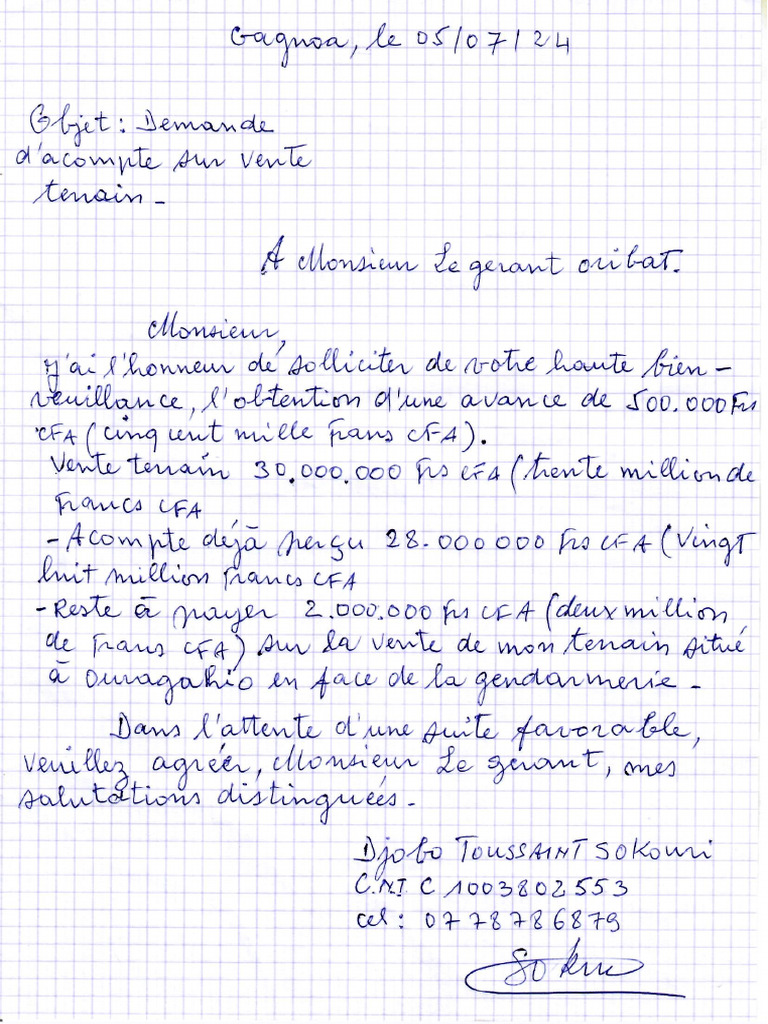 Gagnoa, le 05/07/24
Objet : Demande
d'acompte sur vente
terrain -
A Monsieur Le gerant oribat.
Monsieur,
J'ai l'honneur de solliciter de votre haute bien -
veuillance, l'obtention d'une avance de 500.000 Frs
CFA (cinq cent mille Frans CFA).
Vente terrain 30.000.000 Frs CFA (trente million de
Francs CFA
- Acompte déjà perçu 28.000 000 Frs CFA (Vingt
huit million Francs CFA
- Reste à payer 2.000.000 Frs CFA (deux million
de Frans CFA) sur la vente de mon terrain situé
à Ouragahio en face de la gendarmerie -
Dans l'attente d'une suite favorable,
veuillez agréer, Monsieur Le gerant, mes
salutations distinguées.
Djobo TOUSSAINT SOKouri
C.N.I C 1003802553
cel : 0778786879